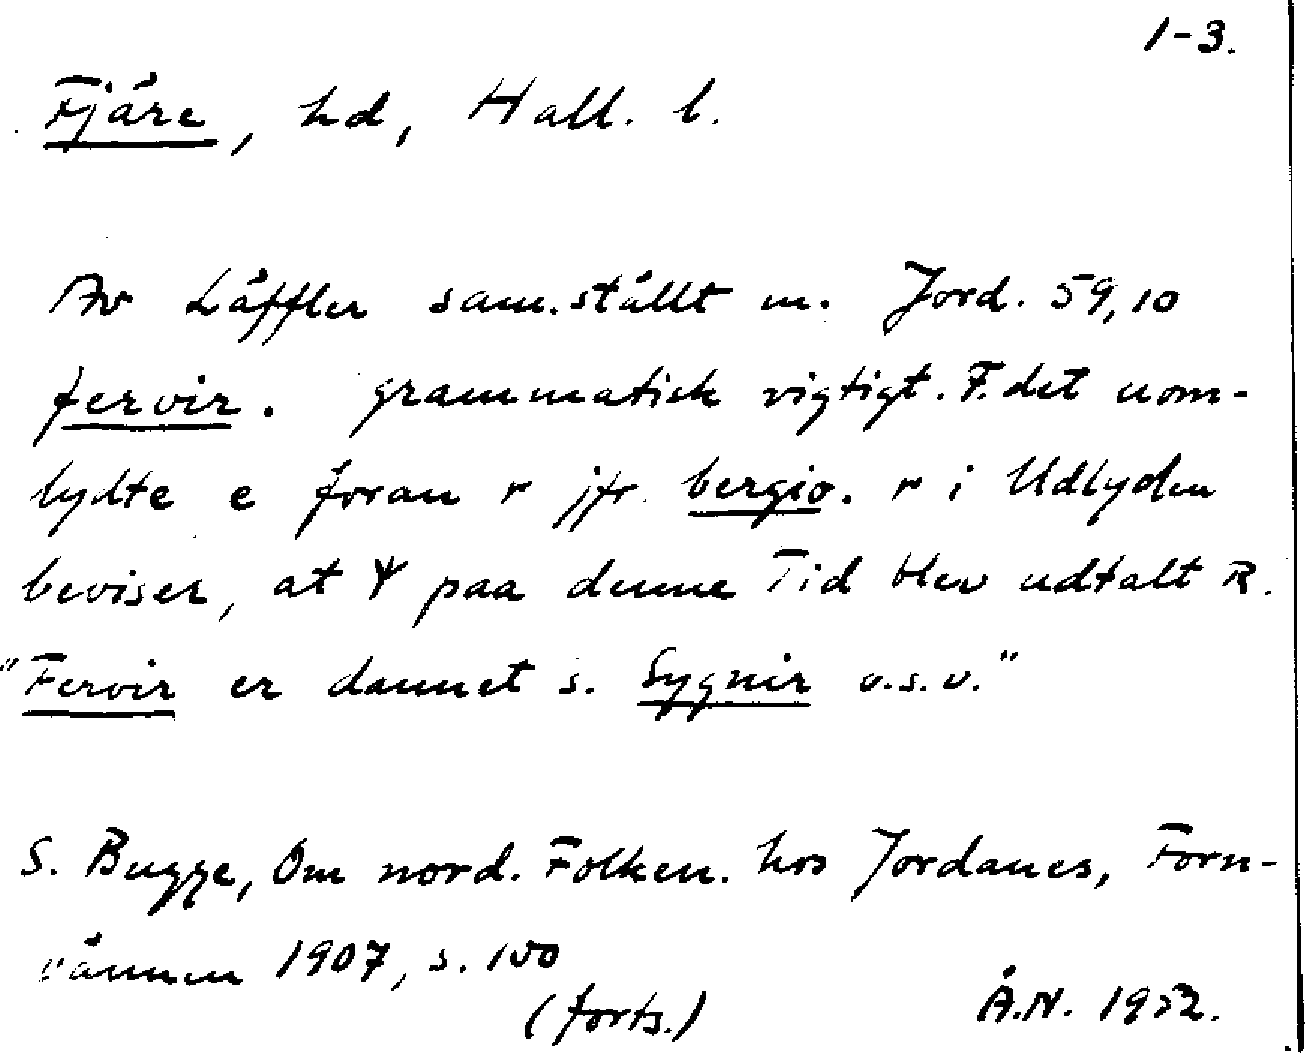 1-3.
Fjäre, hd, Hall. l.
Av Läffler sam.ställt m. Jord. 59,10
fervir. grammatisk vigtigt. F. det uom-
lydte e foran r jfr. bergio. r i Udlyden
beviser, at ᛉ paa denne Tid blev udtalt R.
"Fervir er dannet s. Sygnir o.s.v."
S. Bugge, Om nord. Folken. hos Jordanes, Forn-
vännen 1907, s. 100
(forts.)
Å.N. 1952.